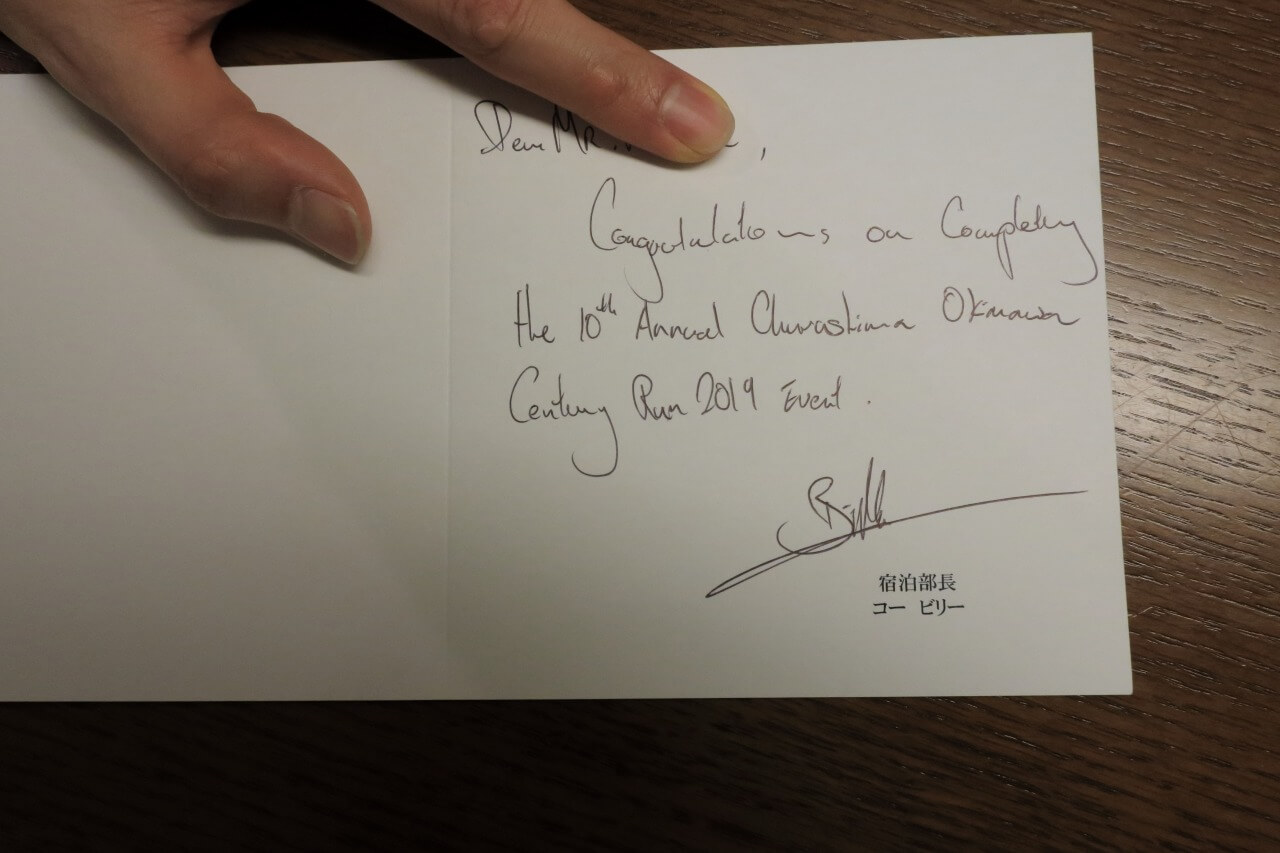 Dear Mr. ,
Congratulations on Completing
the 10th Annual Churashima Okinawa
Century Run 2019 Event.
宿泊部長
コー ビリー